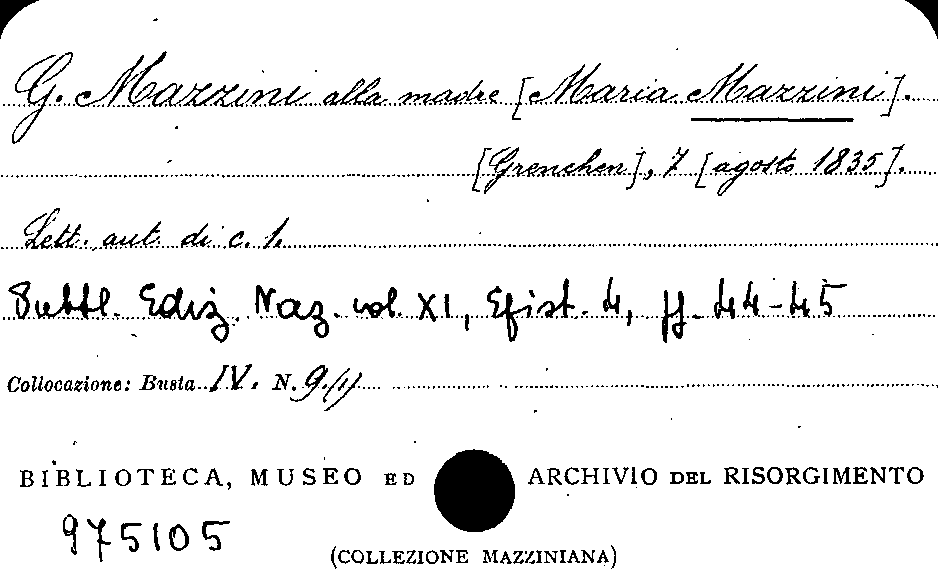 G. Mazzini alla madre [Maria Mazzini].
[Grenchen], 7 [agosto 1835].
Lett. aut. di c. 1.
Pubbl. Ediz. Naz. vol. XI, Epist. 4, pp. 44-45
Collocazione: Busta IV. N. 9.(1)
BIBLIOTECA, MUSEO ED ARCHIVIO DEL RISORGIMENTO
975105
(COLLEZIONE MAZZINIANA)